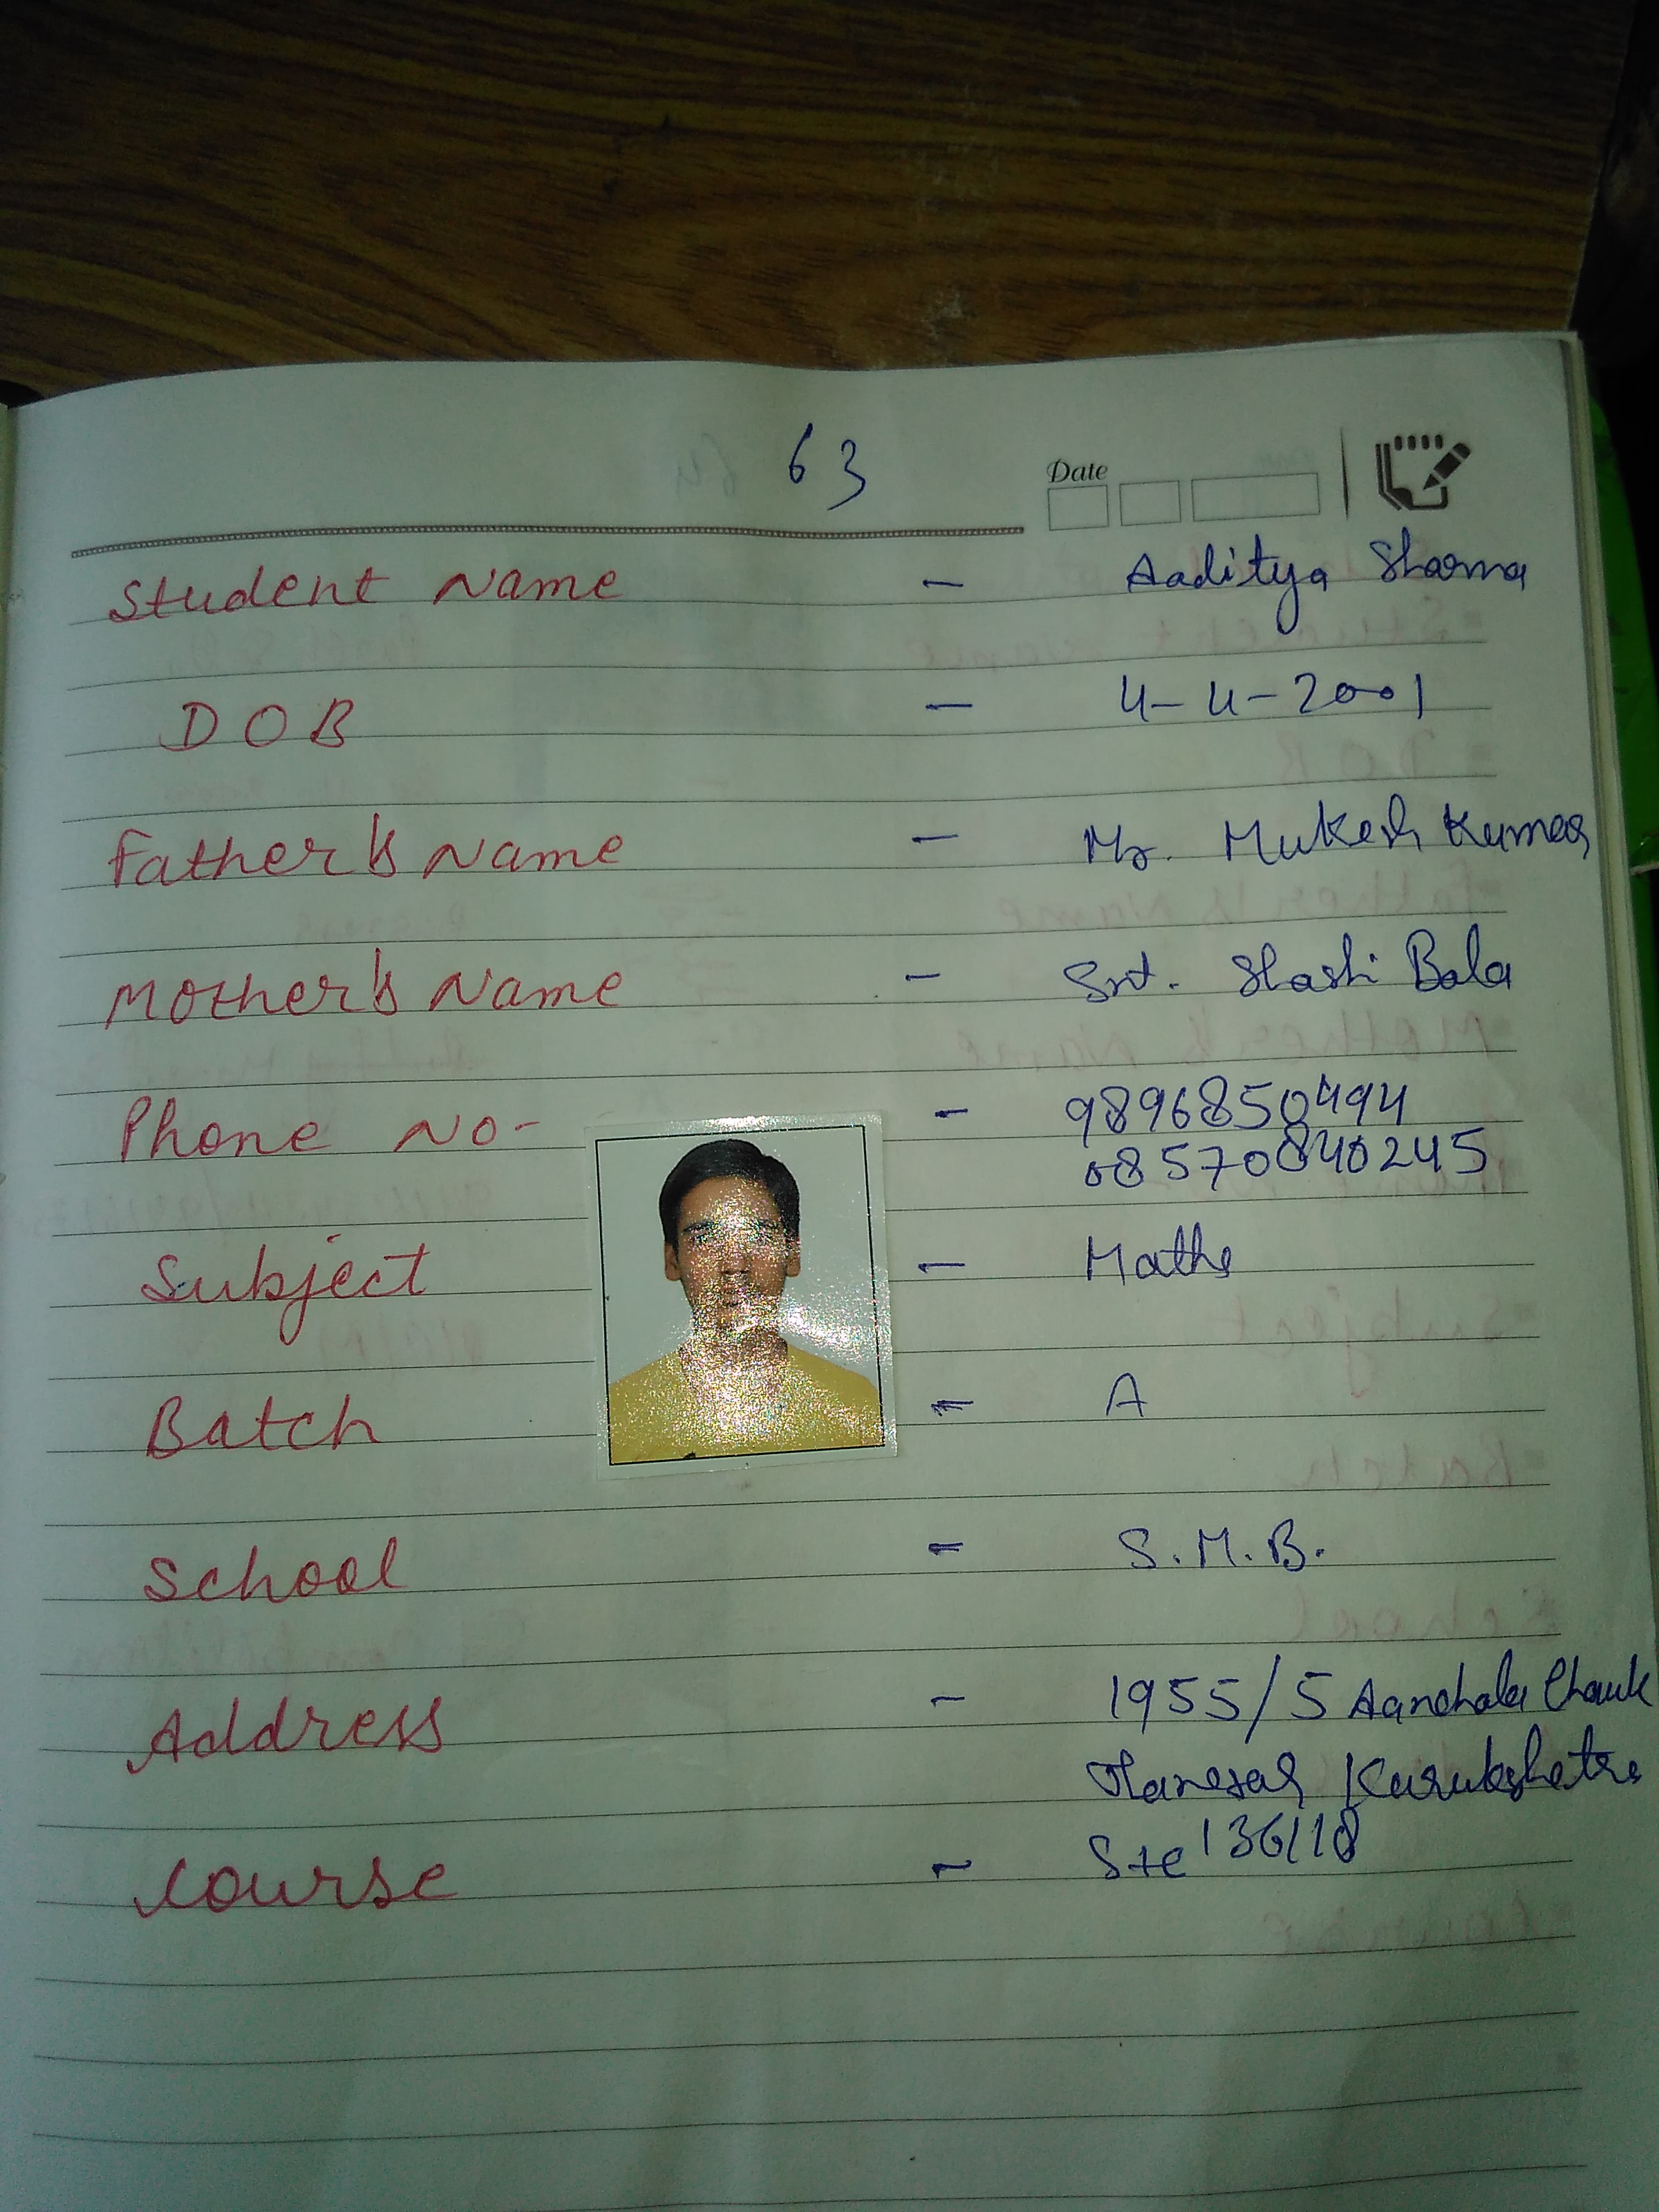 63
Date
Student Name - Aaditya Sharma
DOB - 4-4-2001
Father's Name - Mr. Mukesh Kumar
Mother's Name - Smt. Shashi Bala
Phone No- - 9896850494
08570840245
Subject - Maths
Batch - A
School - S.M.B.
Address - 1955/5 Chowk
Thanesar Kurukshetra
136118
Course -